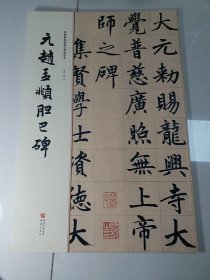 元趙孟頫胆巴碑
大元勑賜龍興寺大
覺普慈廣照無上帝
師之碑
集賢學士資德大